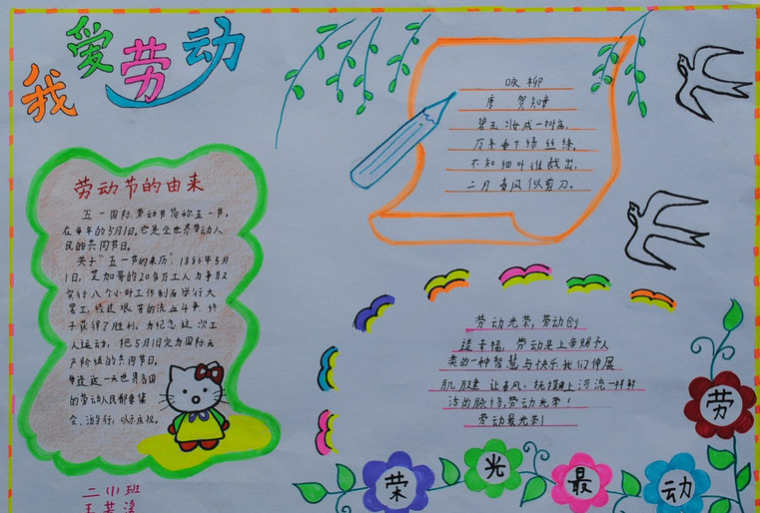 我爱劳动
劳动节的由来
五一国际劳动节简称五一节,
在每年的5月1日,它是全世界劳动人
民的共同节日。
关于“五一节的来历”:1886年5月
1日,芝加哥的20多万工人为争取
实行八个小时工作制而举行大
罢工,经过艰苦的流血斗争,终
于获得了胜利。为纪念这次工
人运动,把5月1日定为国际无
产阶级的共同节日。
每逢这一天世界各国
的劳动人民都要集
会、游行,以示庆祝。
二(1)班
咏柳
唐 贺知章
碧玉妆成一树高,
万条垂下绿丝绦。
不知细叶谁裁出,
二月春风似剪刀。
劳动光荣,劳动创
造幸福,劳动是上帝赐予人
类的一种智慧与快乐我们伸展
肌腱 让春风 抚摸 河流一样
劳动光荣!
劳动最光荣!
荣光最动劳